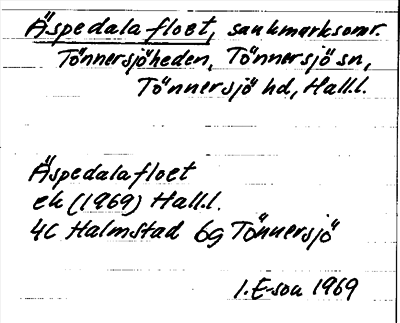 Äspedalafloet, sankmarksomr.
Tönnersjöheden, Tönnersjö sn,
Tönnersjö hd, Hall.l.
Äspedalafloet
ek (1969) Hall.l.
4C Halmstad 6g Tönnersjö
I. E-son 1969